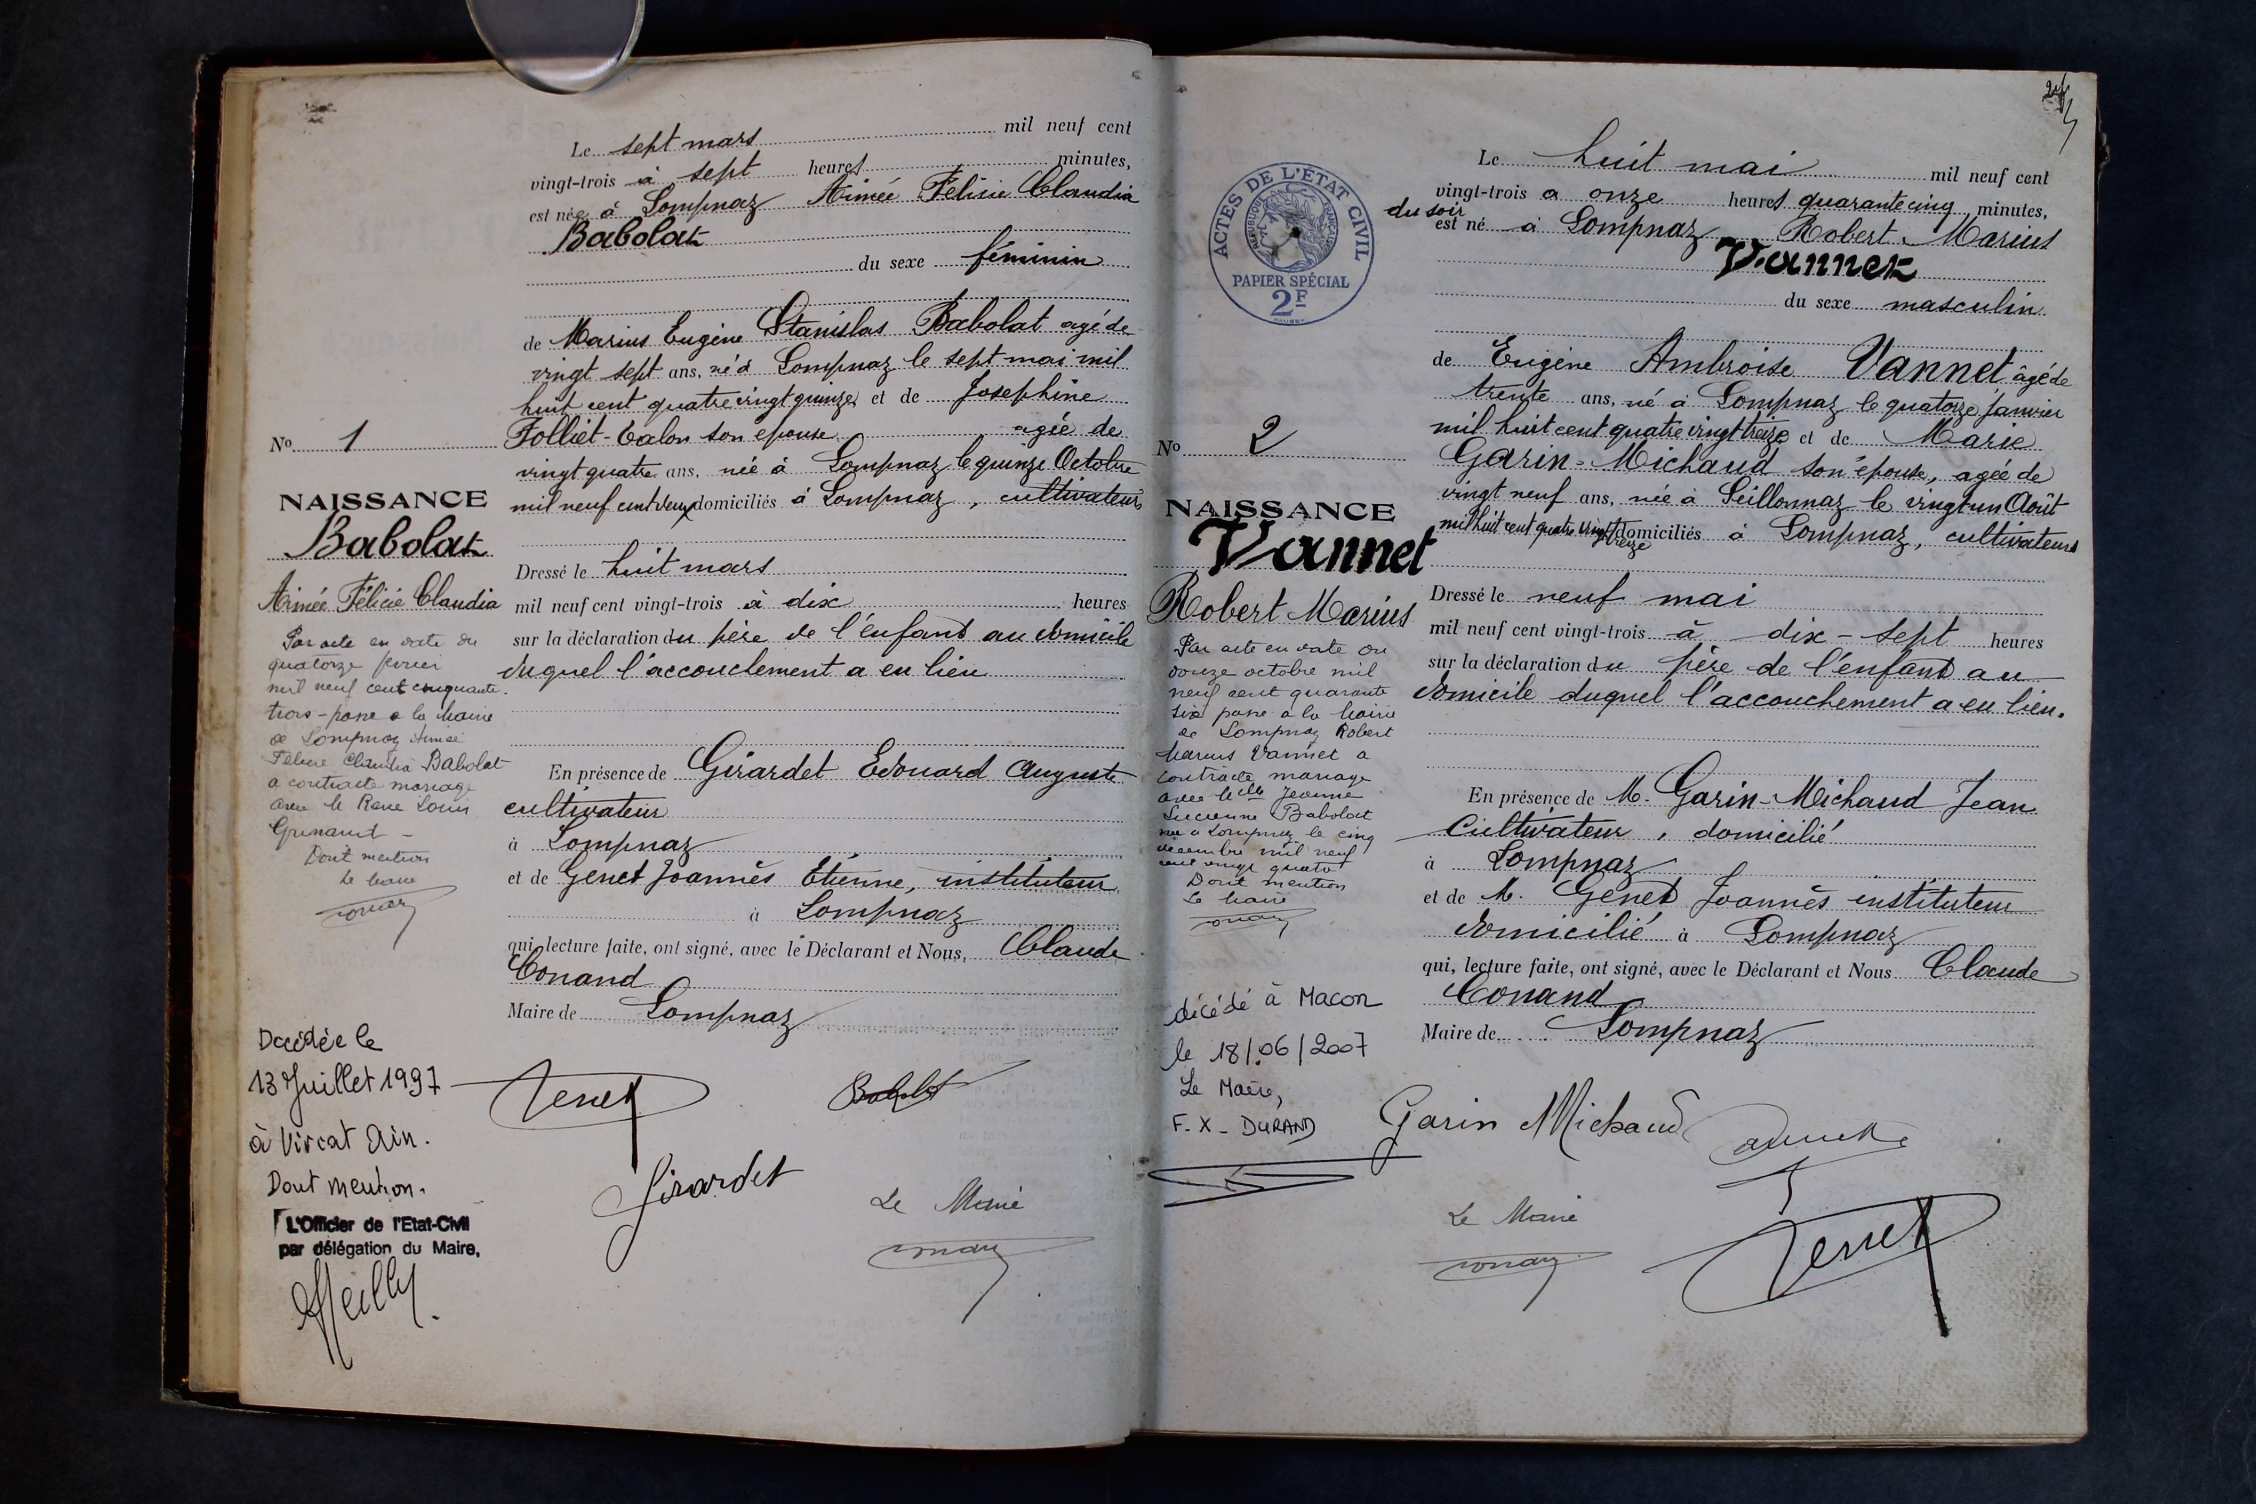 Le sept mars mil neuf cent
vingt-trois à sept heures minutes,
est née à Lompnaz Aimée Félicie Claudia
Babolat
du sexe féminin
de Marius Eugène Stanislas Babolat agé de
vingt sept ans, né à Lompnaz le sept mai mil
huit cent quatre vingt quinze et de Josephine
Folliet-Talon son épouse agée de
vingt quatre ans, née à Lompnaz le quinze Octobre
mil neuf cent deux domiciliés à Lompnaz, cultivateurs
No 1
NAISSANCE
Babolat
Aimée Félicie Claudia
Par acte en date du
quatorze février
mil neuf cent cinquante
trois - passé à la Mairie
de Lompnaz Aimée
Félicie Claudia Babolat
a contracté mariage
avec le René Louis
Dont mention
Le Maire
Dressé le huit mars
mil neuf cent vingt-trois à dix heures
sur la déclaration du père de l'enfant au domicile
duquel l'accouchement a eu lieu
En présence de Girardet Edouard Auguste
cultivateur
à Lompnaz
et de Genet Joannès Etienne, instituteur
à Lompnaz
qui, lecture faite, ont signé, avec le Déclarant et Nous, Claude
Conand
Maire de Lompnaz
Décédée le
13 Juillet 1997
à Viriat Ain.
Dont mention.
L'Officier de l'Etat-Civil
par délégation du Maire,
Genet
Babolat
Girardet
Le Maire
Conand
24
ACTES DE L'ÉTAT CIVIL
RÉPUBLIQUE FRANÇAISE
PAPIER SPÉCIAL
2F
Le huit mai mil neuf cent
vingt-trois à onze heures quarante cinq minutes,
du soir
est né à Lompnaz Robert Marius
Vannet
du sexe masculin
de Eugène Ambroise Vannet âgé de
trente ans, né à Lompnaz le quatorze Janvier
mil huit cent quatre vingt treize et de Marie
Garin-Michaud son épouse, agée de
vingt neuf ans, née à Seillonnaz le vingt un Août
mil huit cent quatre vingt treize domiciliés à Lompnaz, cultivateurs
No 2
NAISSANCE
Vannet
Robert Marius
Par acte en date du
douze octobre mil
neuf cent quarante
six passé à la Mairie
de Lompnaz Robert
Marius Vannet a
contracté mariage
avec Melle Jeanne
Lucienne Babolat
née à Lompnaz le cinq
décembre mil neuf
cent vingt quatre
Dont mention
Le Maire
Dressé le neuf mai
mil neuf cent vingt-trois à dix-sept heures
sur la déclaration du père de l'enfant au
domicile duquel l'accouchement a eu lieu.
En présence de M. Garin-Michaud Jean
Cultivateur, domicilié
à Lompnaz
et de M. Genet Joannès instituteur
domicilié à Lompnaz
qui, lecture faite, ont signé, avec le Déclarant et Nous Claude
Conand
Maire de Lompnaz
décédé à Macon
le 18/06/2007
Le Maire,
F.X. DURAND
Garin Michaud
Vannet
Le Maire
Conand
Genet